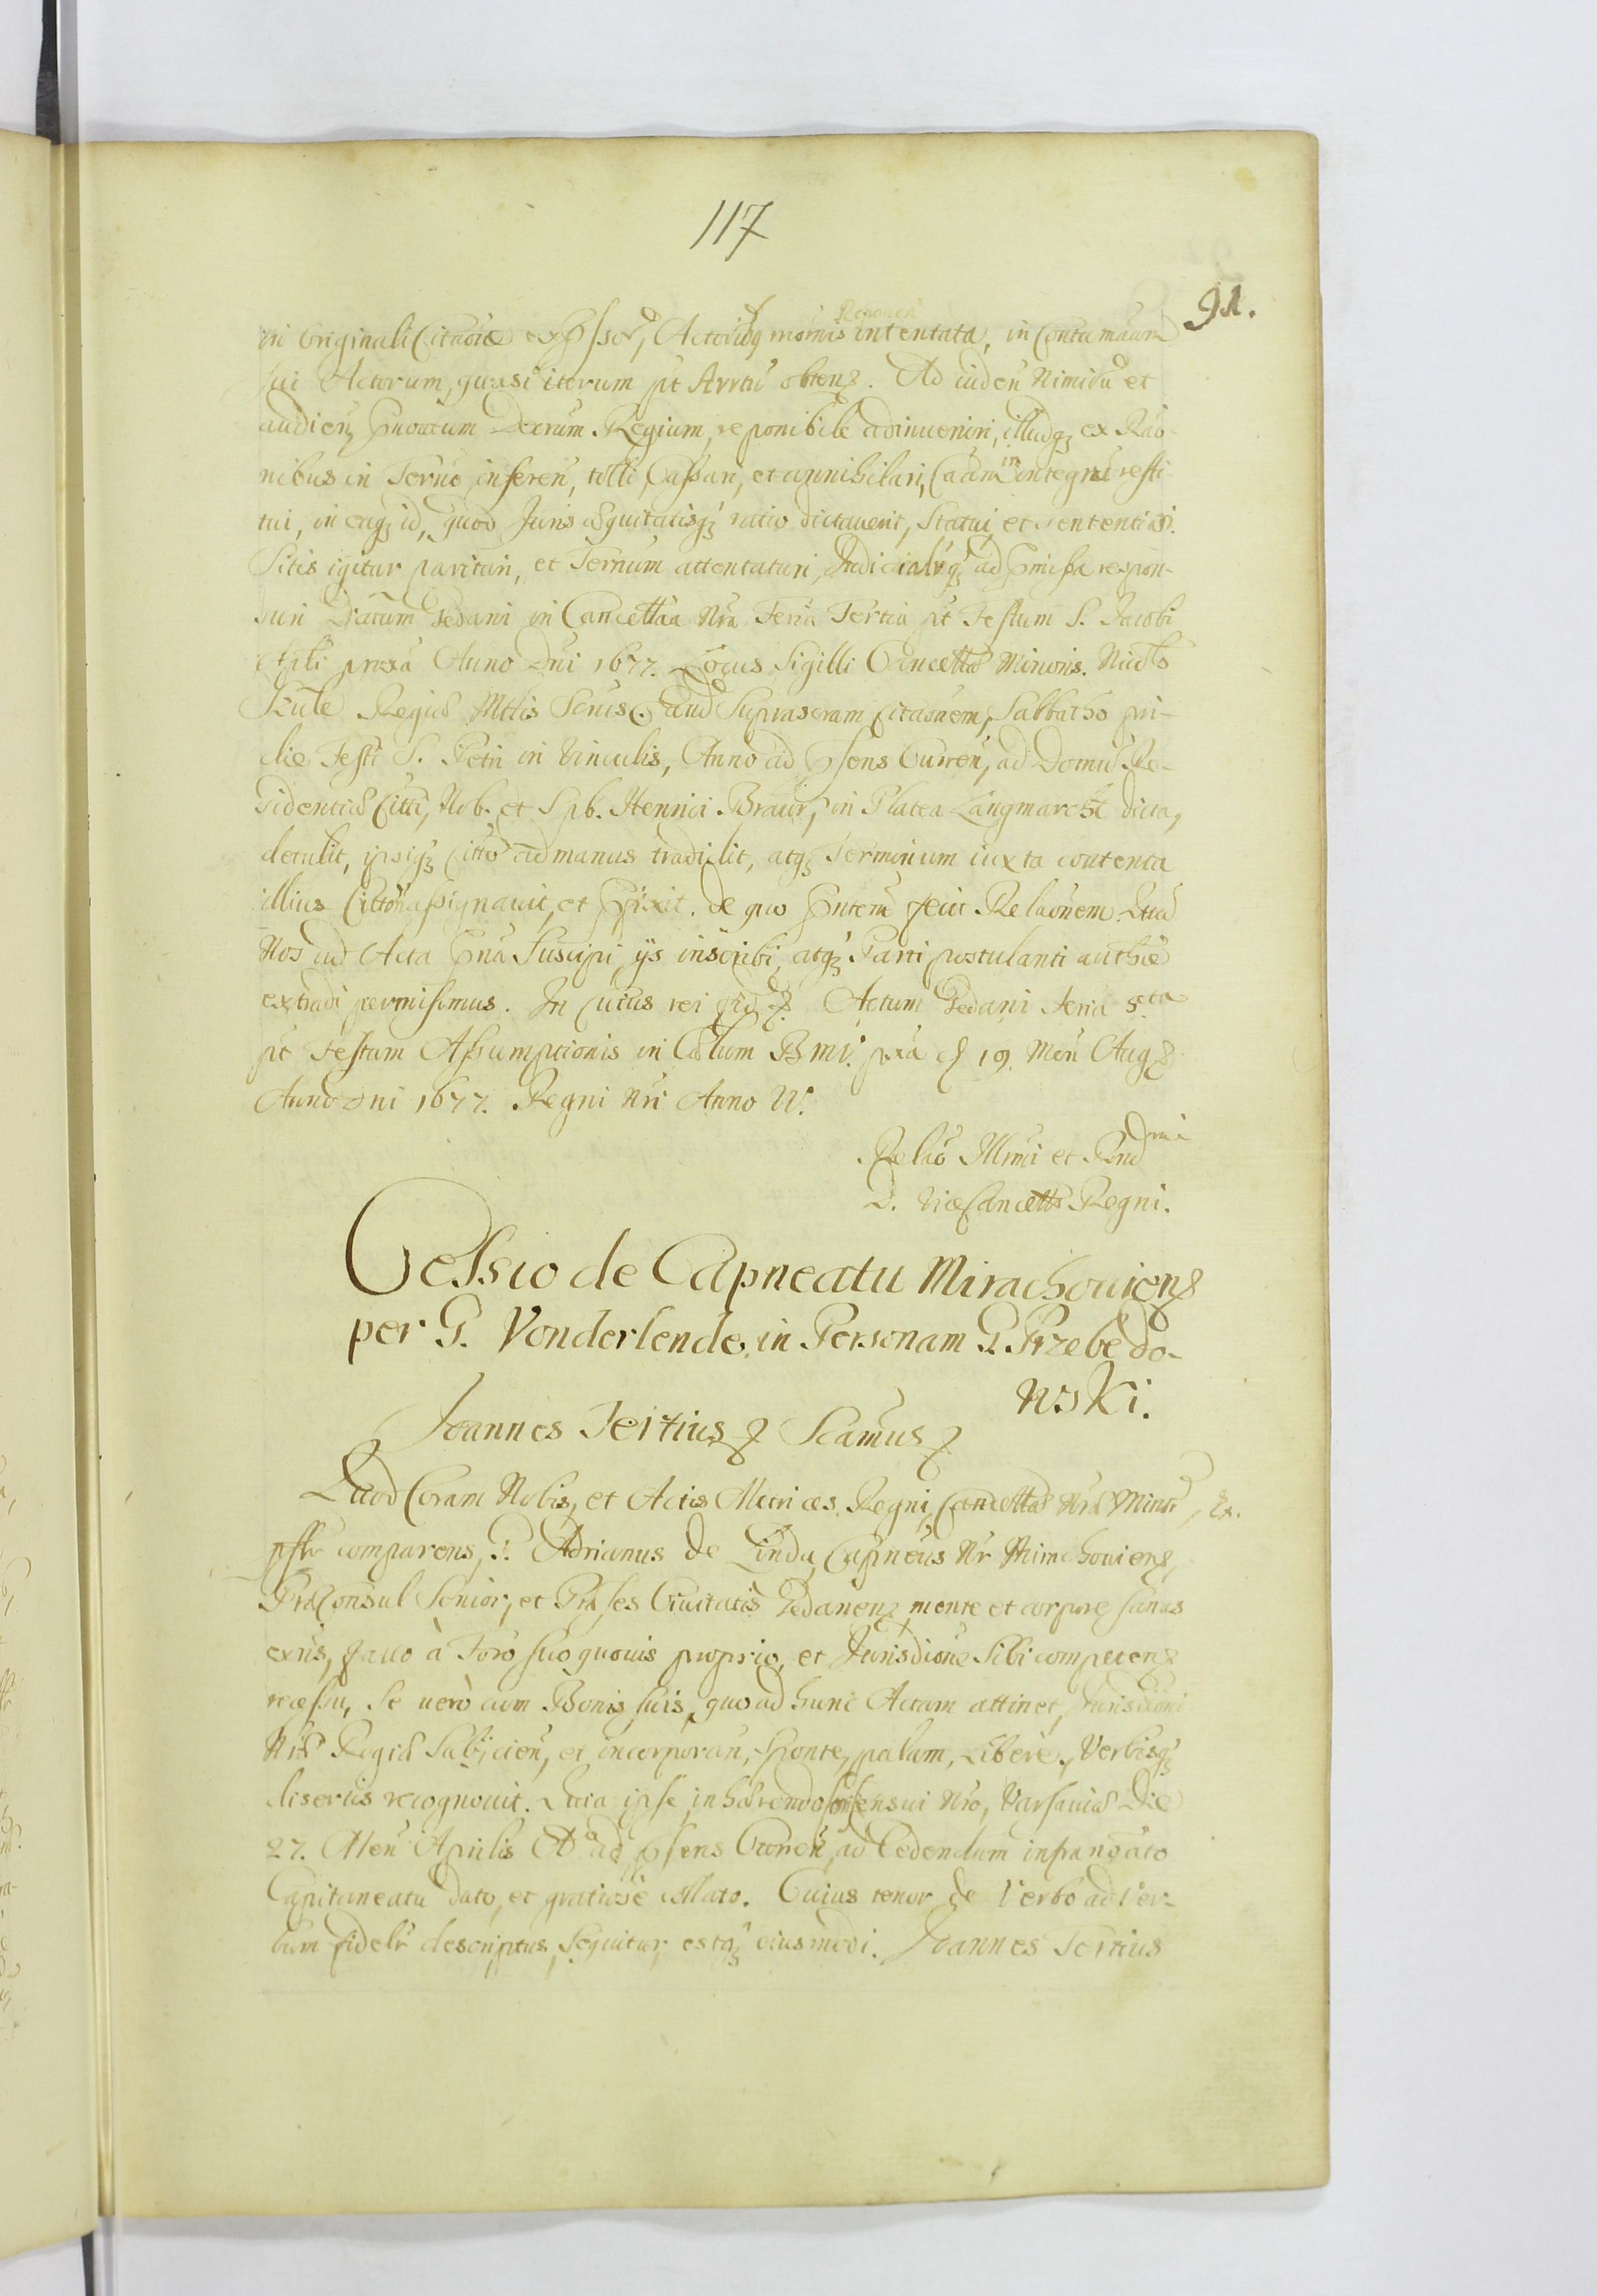 117
91.
in Originali Citaõne expsso, Actoribq mornis intentata, in Contumaam
sui Actorum, quasi iterum pt Arrtũ obtenß. Ad iuden̄ Nimirũ et
audien̄ Decrum Regium, reponibile adinueniri, illudqꝫ ex Rao-
nibus in Terno inferen̄, tolli, Cassari, et annihilari, Caam in integrũ resti-
tui, in eaqꝫ id, quod Juris aequitatisqꝫ ratio dictauerit, Statui et sententiari.
Sitis igitur parituri, et Ternum attentaturi, Judicialrqꝫ ad pmissa respon-
suri Datum Gedani in Cancellaa Nra Feria Tertia pt Festum S. Jacobi
Apli proxa Anno Dni 1677. Locus Sigilli Cancellae Minoris.
Regiae Mttis Suprascram Citaonem, Sabbatho pri-
die Festi S. Petri in Vinculis, Anno ad psens Curren̄, ad Domũ Re-
sidentiae Citti, Nob. et Spb. Henrici Braur, in Platea Langmarckt dicta,
detulit, ipsiqꝫ Citto ad manus tradidit, atqꝫ Terminum iuxta contenta
illius Citto assignauit, et pfixit. de quo pntem fecit Relaonem. Qua
Nos ad Acta pna Suscipi, ijs inscribi, atqꝫ Parti postulanti authẽ
extradi permisimus. In cuius rei fid ꝫ. Actum Gedani Feria 5.ta
pt Festum Assumptionis in Caelum BMV. pxa d 19. Men̄ Augß
Anno Dni 1677. Regni Nri Anno IV.
Relao Illrmi et Rndmi
D. ViceCancelli Regni.
Cessio de Capneatu Mirachouienß
per G. Vonderlende, in Personam G. Przebędo-
wski.
Joannes Tertius ꝫ Scamus ꝫ
Quod Coram Nobis, et Actis Metrices Regni, Cancellae Nrae Minor, Ex.
psltr comparens, G. Adrianus de Linda, Capneus Nr Mirachouienß,
PraeConsul Senior, et Praeses Ciuitatis Gedanenß, mente et corpore sanus
exns, saluo à Foro suo quouis proprio, et Jurisdione Sibi competenß
recessu, Se uerò cum Bonis suis, quo ad hunc Actum attinet, Jurisdioni
Nrae Regiae Subijcien̄, et incorporan̄, sponte, palam, Liberè, Verbisqꝫ
disertis recognouit. Quia ipse inhaerendo Consensui Nro, Varsauiae Die
27. Men̄ Aprilis Ao ad psens Curren̄, ad Cedendum infranoato
Capitaneatu dato, et gratiosè collato. Cuius tenor de Verbo ad Ver-
bum fidelr descriptus, Sequitur, estqꝫ eiusmodi. Joannes Tertius